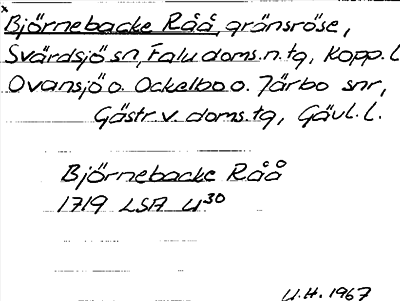 x
Björnebacke Råå, gränsröse,
Svärdsjö sn, Falu doms.n.tg, Kopp.l
Ovansjö o. Ockelbo o. Järbo snr,
Gästr.v.doms.tg, Gävl.l.
Björnebacke Råå
1719 LSA U30
U.H. 1967